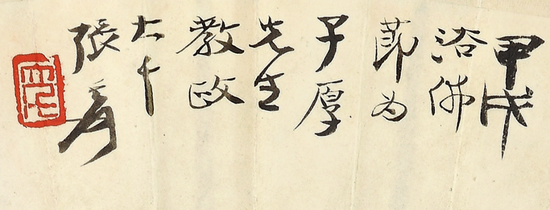 甲戌
浴佛
節为
子厚
先生
教政
大千
張爰